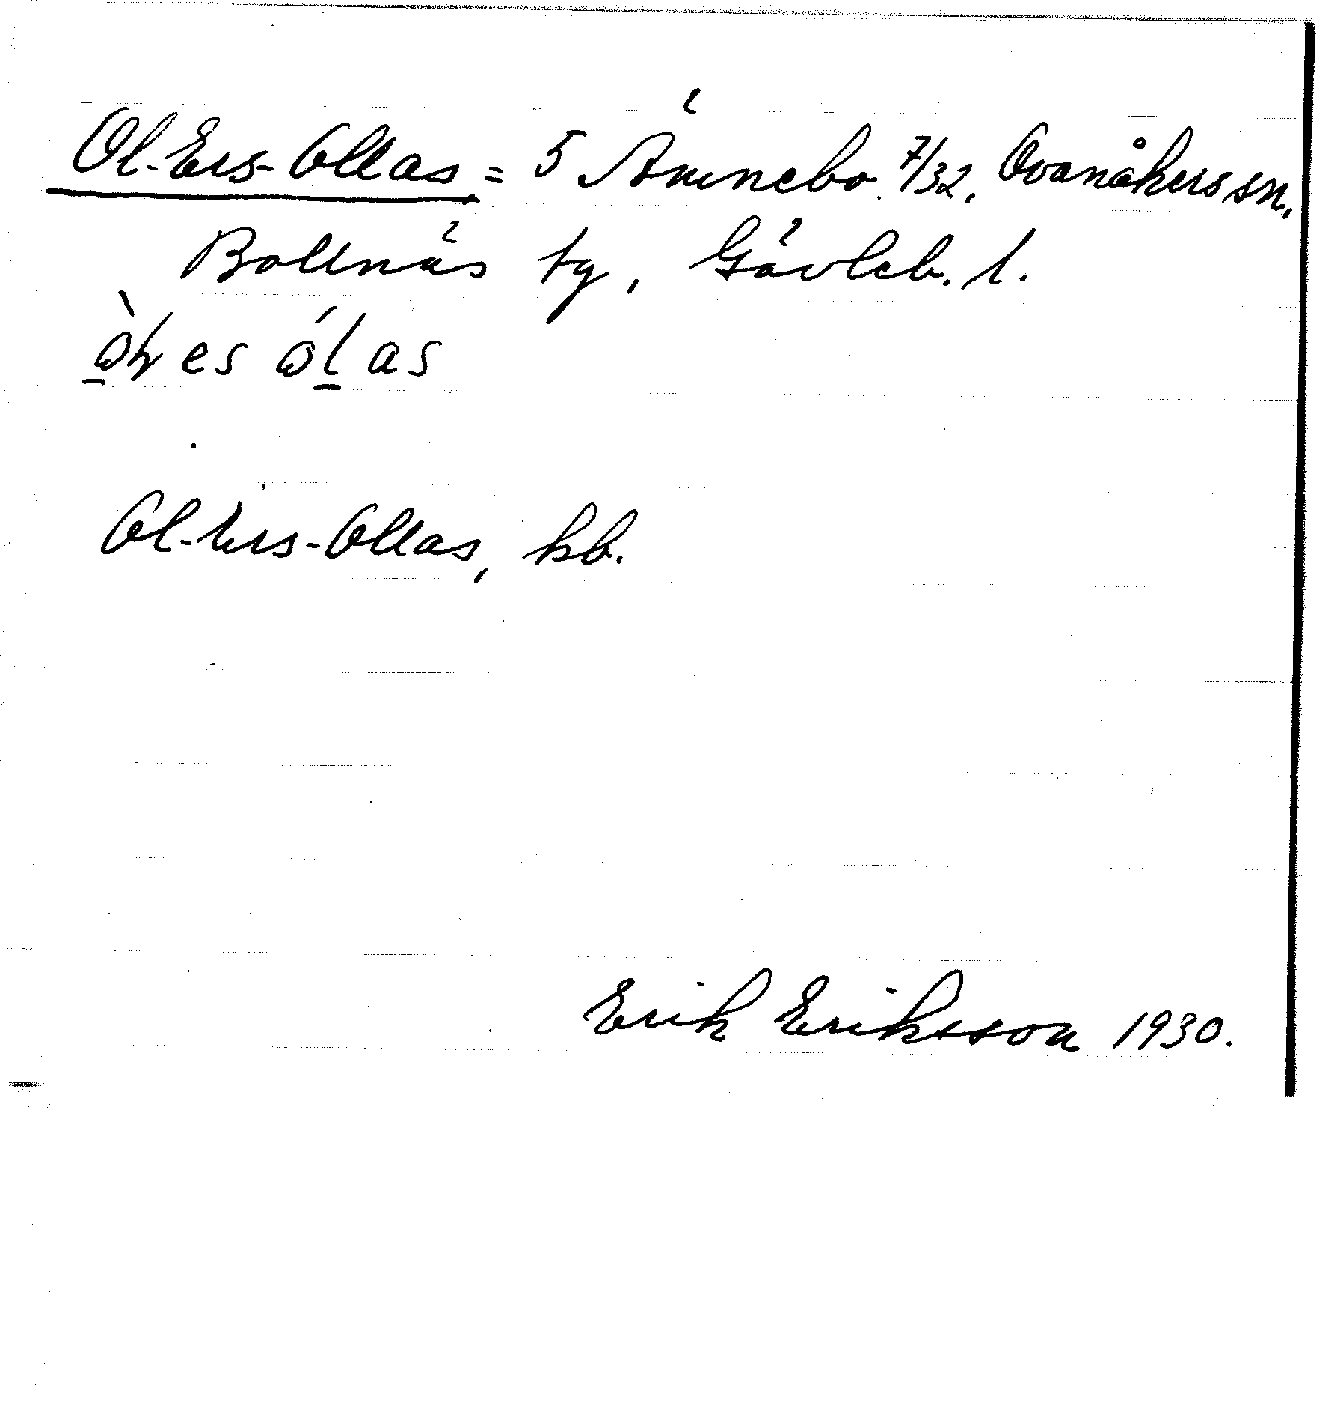 Ol-Ers-Ollas = 5 Ämnebo 7/32, Ovanåkers sn,
Bollnäs tg, Gävleb. l.
es as
Ol-Ers-Ollas, kb.
Erik Eriksson 1930.